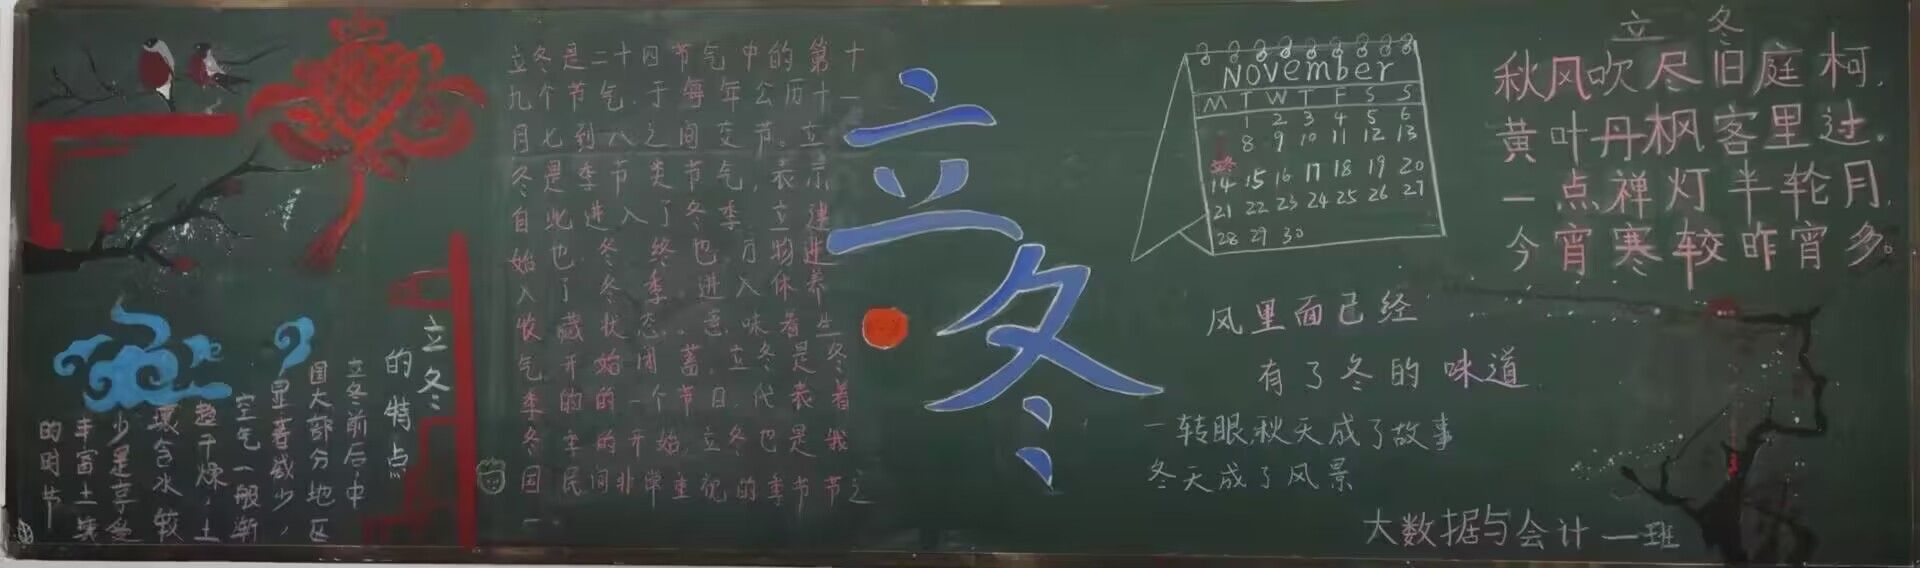 立冬
的特点
立冬前后中
国大部分地区
显著减少,
空气一般渐
趋干燥,土
壤含水较
少是享受
丰富土壤
的时节
立冬是二十四节气中的第十
九个节气.于每年公历十一
月七到八之间交节。立
冬是季节类节气,表示
自此进入了冬季.立建
始也,冬终也万物进
入了冬季.进入休养
收藏状态.意味着生
气开始闭蓄.立冬是冬
季的的一个节日.代表着
冬季的开始.立冬也是我
国民间非常重视的季节节之
一
立冬
November
M T W T F S S
1 2 3 4 5 6
8 9 10 11 12 13
14 15 16 17 18 19 20
21 22 23 24 25 26 27
28 29 30
风里面已经
有了冬的味道
一转眼,秋天成了故事
冬天成了风景
立冬
秋风吹尽旧庭柯,
黄叶丹枫客里过.
一点禅灯半轮月,
今宵寒较昨宵多。
大数据与会计一班